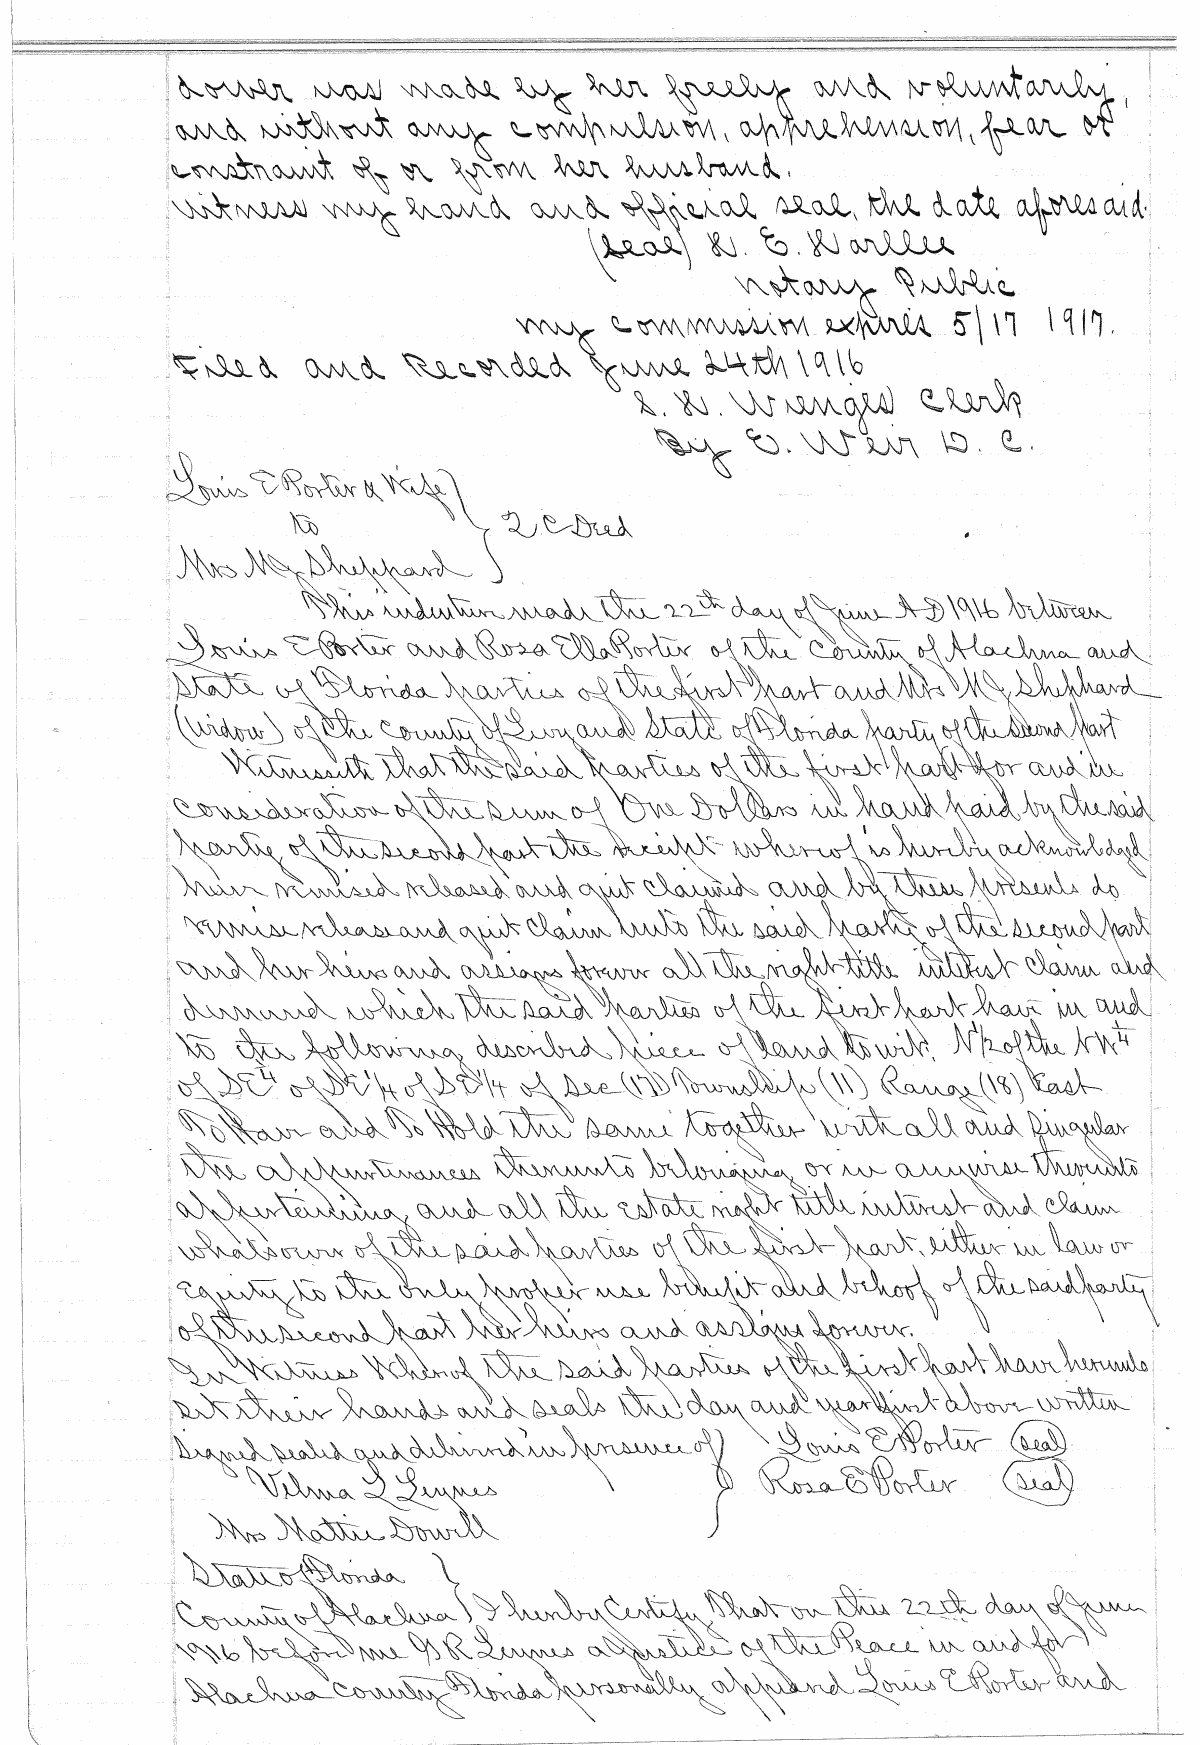 dower was made by her freely and voluntarily,
and without any compulsion, apprehension, fear or
constraint of or from her husband.
Witness my hand and official seal, the date aforesaid.
(Seal) W. E. Warllee
Notary Public
my commission expires 5/17 1917.
Filed and Recorded June 24th 1916
S. H. Wienges Clerk
By E. Weir D. C.
Louis E Porter & Wife
to } Q C Deed
Mrs M J Sheppard
This indenture made the 22th day of June A D 1916 between
Louis E Porter and Rosa Ella Porter of the County of Alachua and
State of Florida parties of the first part and Mrs M J Shephard
(Widow) of the County of Levy and State of Florida party of the Second part
Witnesseth that the said parties of the first part for and in
consideration of the sum of One Dollars in hand paid by the said
party of the second part the receipt whereof is hereby acknowledged
have remised released and quit claimed and by these presents do
remise release and quit claim unto the said party of the second part
and her heirs and assigns forever all the right title interest claim and
demand which the said parties of the first part have in and
to the following described piece of land to wit. N 1/2 of the NW 4
of SE 4 of SE 1/4 of SE 1/4 of Sec (17) Township (11) Range (18) East
To Have and To Hold the same together with all and Singular
the appurtenances thereunto belonging or in anywise thereunto
appertaining and all the Estate right title interest and claim
whatsoever of the said parties of the first part, either in law or
Equity to the only proper use benefit and behoof of the said party
of the second part her heirs and assigns forever.
In Witness Wherof the said parties of the first part have hereunto
set their hands and seals the day and year first above written
Signed sealed and delivered in presence of Louis E Porter (Seal)
Velma L Lynes } Rosa E Porter (Seal)
Mrs Mattie Dowell
State of Florida }
County of Alachua } I hereby Certify That on this 22th day of June
1916 before me G R Lynes a Justice of the Peace in and for
Alachua County Florida personally appeared Louis E Porter and